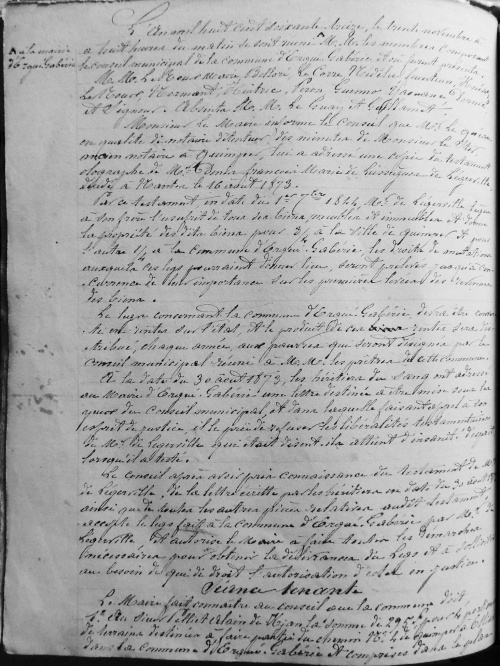 L'An mil huit cent soixante treize, le trente novembre à
à huit heures du matin se sont réunis MM. les membres composant
le conseil municipal de la commune d'Ergué Gabéric, étaient présents
à la mairie
d'Ergué Gabéric
M.M. Le Roux Maire,
Le Roux,
et Absents M.M. Le Guay et
Monsieur le Maire informe le conseil que Me
en qualité de notaire détenteur des minutes de Monsieur
notaire à Quimper, lui a adressé une copie du testament
olographe de Mr. François Marie de Lésgerville
décédé à Nantes le 16 août 1873.
Par ce testament, en date du 1er 7bre 1844, Mr. de Legerville lègue
à son frère l'usufruit de tous ses biens meubles et immeubles et donne
la propriété des dits biens pour 3/4 à la ville de Quimper et pour
l'autre 1/4 à la commune d'Ergué Gabéric, les droits de mutations
auxquels ces legs pourraient donner lieu, seront prélevés jusqu'à con-
currence de leur importance sur les premiers
des biens.
Le legs concernant la commune d'Ergué Gabéric, devra être conver-
ti en rentes sur l'état, et le produit de ces rentes sera dis-
tribué, chaque année, aux pauvres qui seront désignés par le
conseil municipal réuni à M.M. les prêtres de cette commune.
À la date du 30 août 1873, les héritiers du sang ont adressé
au Maire d'Ergué Gabéric une lettre destinée à être mise sous les
yeux du Conseil municipal, et dans laquelle faisant appel à son
esprit de justice, il le prie de refuser les libéralités testamentaires
de Mr. de Legerville qui était disent-ils atteint d'insanité d'esprit
lorsqu'il a testé.
Le Conseil après avoir pris connaissance du testament de Mr
de Legerville, de la lettre écrite par les héritiers en date du 30 août
ainsi que de toutes les autres pièces relatives audit testament
accepte le legs fait à la commune d'Ergué Gabéric par Mr. de
Legerville et autorise le Maire à faire toutes les démarches
nécessaires pour obtenir la délivrance du legs et à solliciter
au besoin de qui de droit l'autorisation d'ester en justice.
Séance tenante
Le Maire fait connaître au conseil que la commune doit
1° Au Sieur Alain de la somme de 29
de terrains destinés à faire partie du chemin de Quimper à
dans la commune d'Ergué Gabéric et comprises dans le